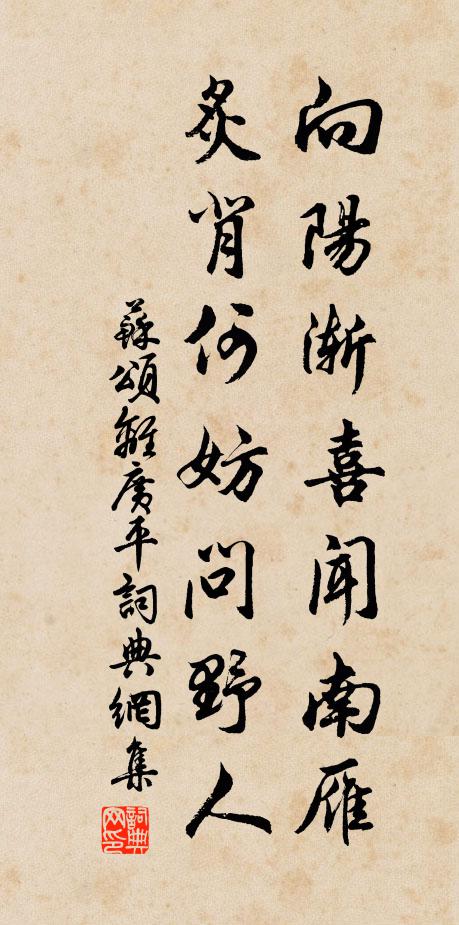 向陽漸喜聞南雁
炙背何妨問野人
蘇頌離廣平詞典網集
詞典網印